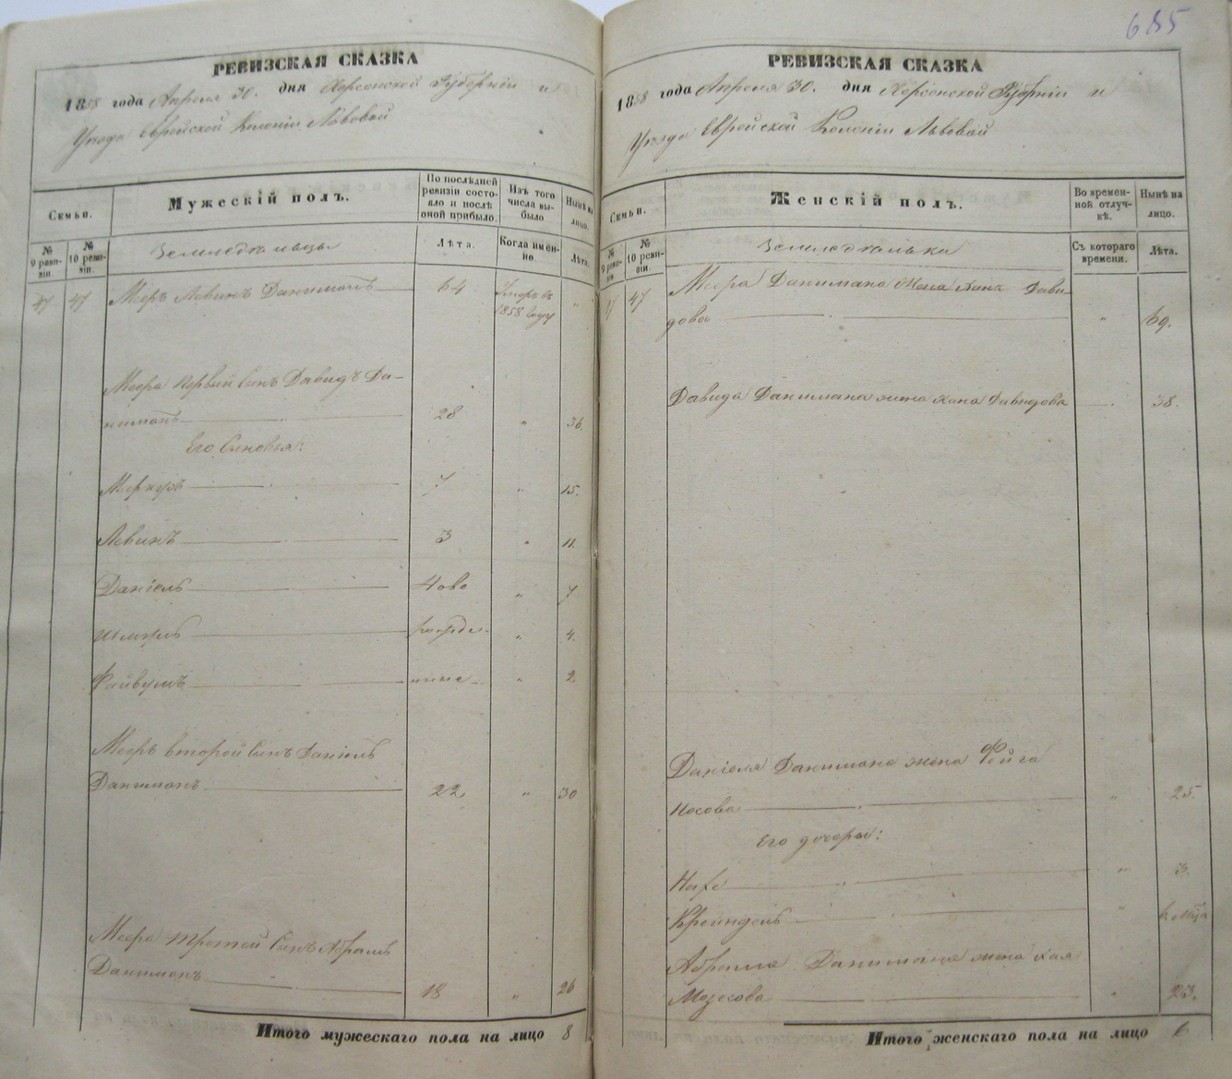 685
РЕВИЗСКАЯ СКАЗКА
1858 года Апреля 30. дня Херсонской Губернiи и
Уезда Еврейской Колонiи Львовой
Семьи.
Мужескiй полъ.
По последней ревизiи состояло и после оной прибыло.
Изъ того числа выбыло
Ныне на лицо.
№ 9 ревизiи.
№ 10 ревизiи.
Земледельцы
Лѣта.
Когда именно.
Лѣта.
47 47 Меръ Левинъ Даншманъ 64 Умеръ въ 1858 году "
Меера первый сынъ Давидъ Да-
ншманъ 28 " 36.
Его Сыновья:
7 " 15.
Левинъ 3 " 11.
Данiель " 7
Шмеръ " 4.
Файвушъ " 2
Мееръ второй сынъ Данiель
Даншманъ 22 " 30
Меера третiй сынъ Абрамъ
Даншманъ 18 " 26
Итого мужескаго пола на лицо 8
РЕВИЗСКАЯ СКАЗКА
1858 года Апреля 30. дня Херсонской Губернiи и
Уезда Еврейской Колонiи Львовой
Семьи.
Женскiй полъ.
Во временной отлучкѣ.
Нынѣ на лицо.
№ 9 ревизiи
№ 10 ревизiи.
Съ котораго времени.
Лѣта.
47 47 Меера Даншмана жена Дави-
дова " 69.
Давида Даншмана жена Хана Давидова 38.
Данiеля Даншмана жена Фейга
Носова " 25
Его дочери:
" 3.
Крейндель "
Абрама Даншмана жена Хая
Мозесова " 23.
Итого женскаго пола на лицо 6